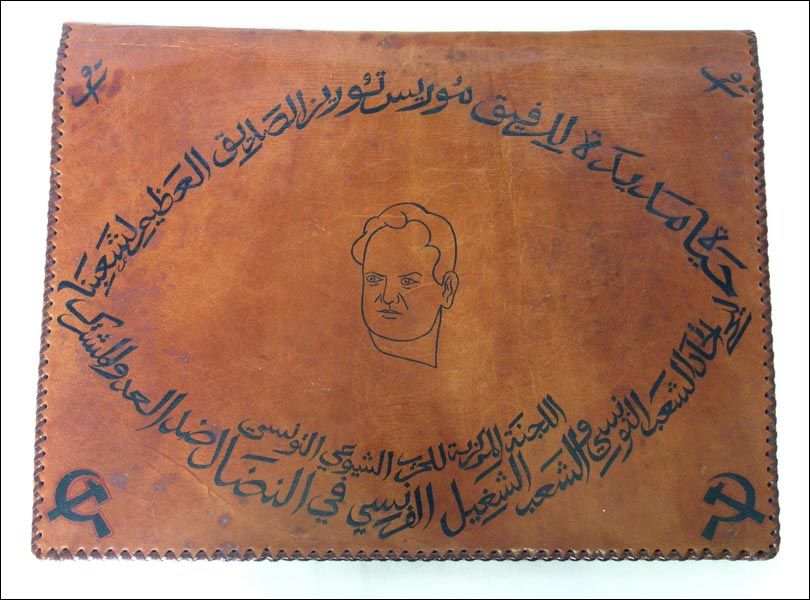 حياة مديدة للرفيق مُوريس تُوريز الصديق العظيم لشعبنا
اتحاد الشعب التونسي والشعب الشغيل الفرنسي في النضال ضد العدو المشترك
اللجنة المركزية للحزب الشيوعي التونسي